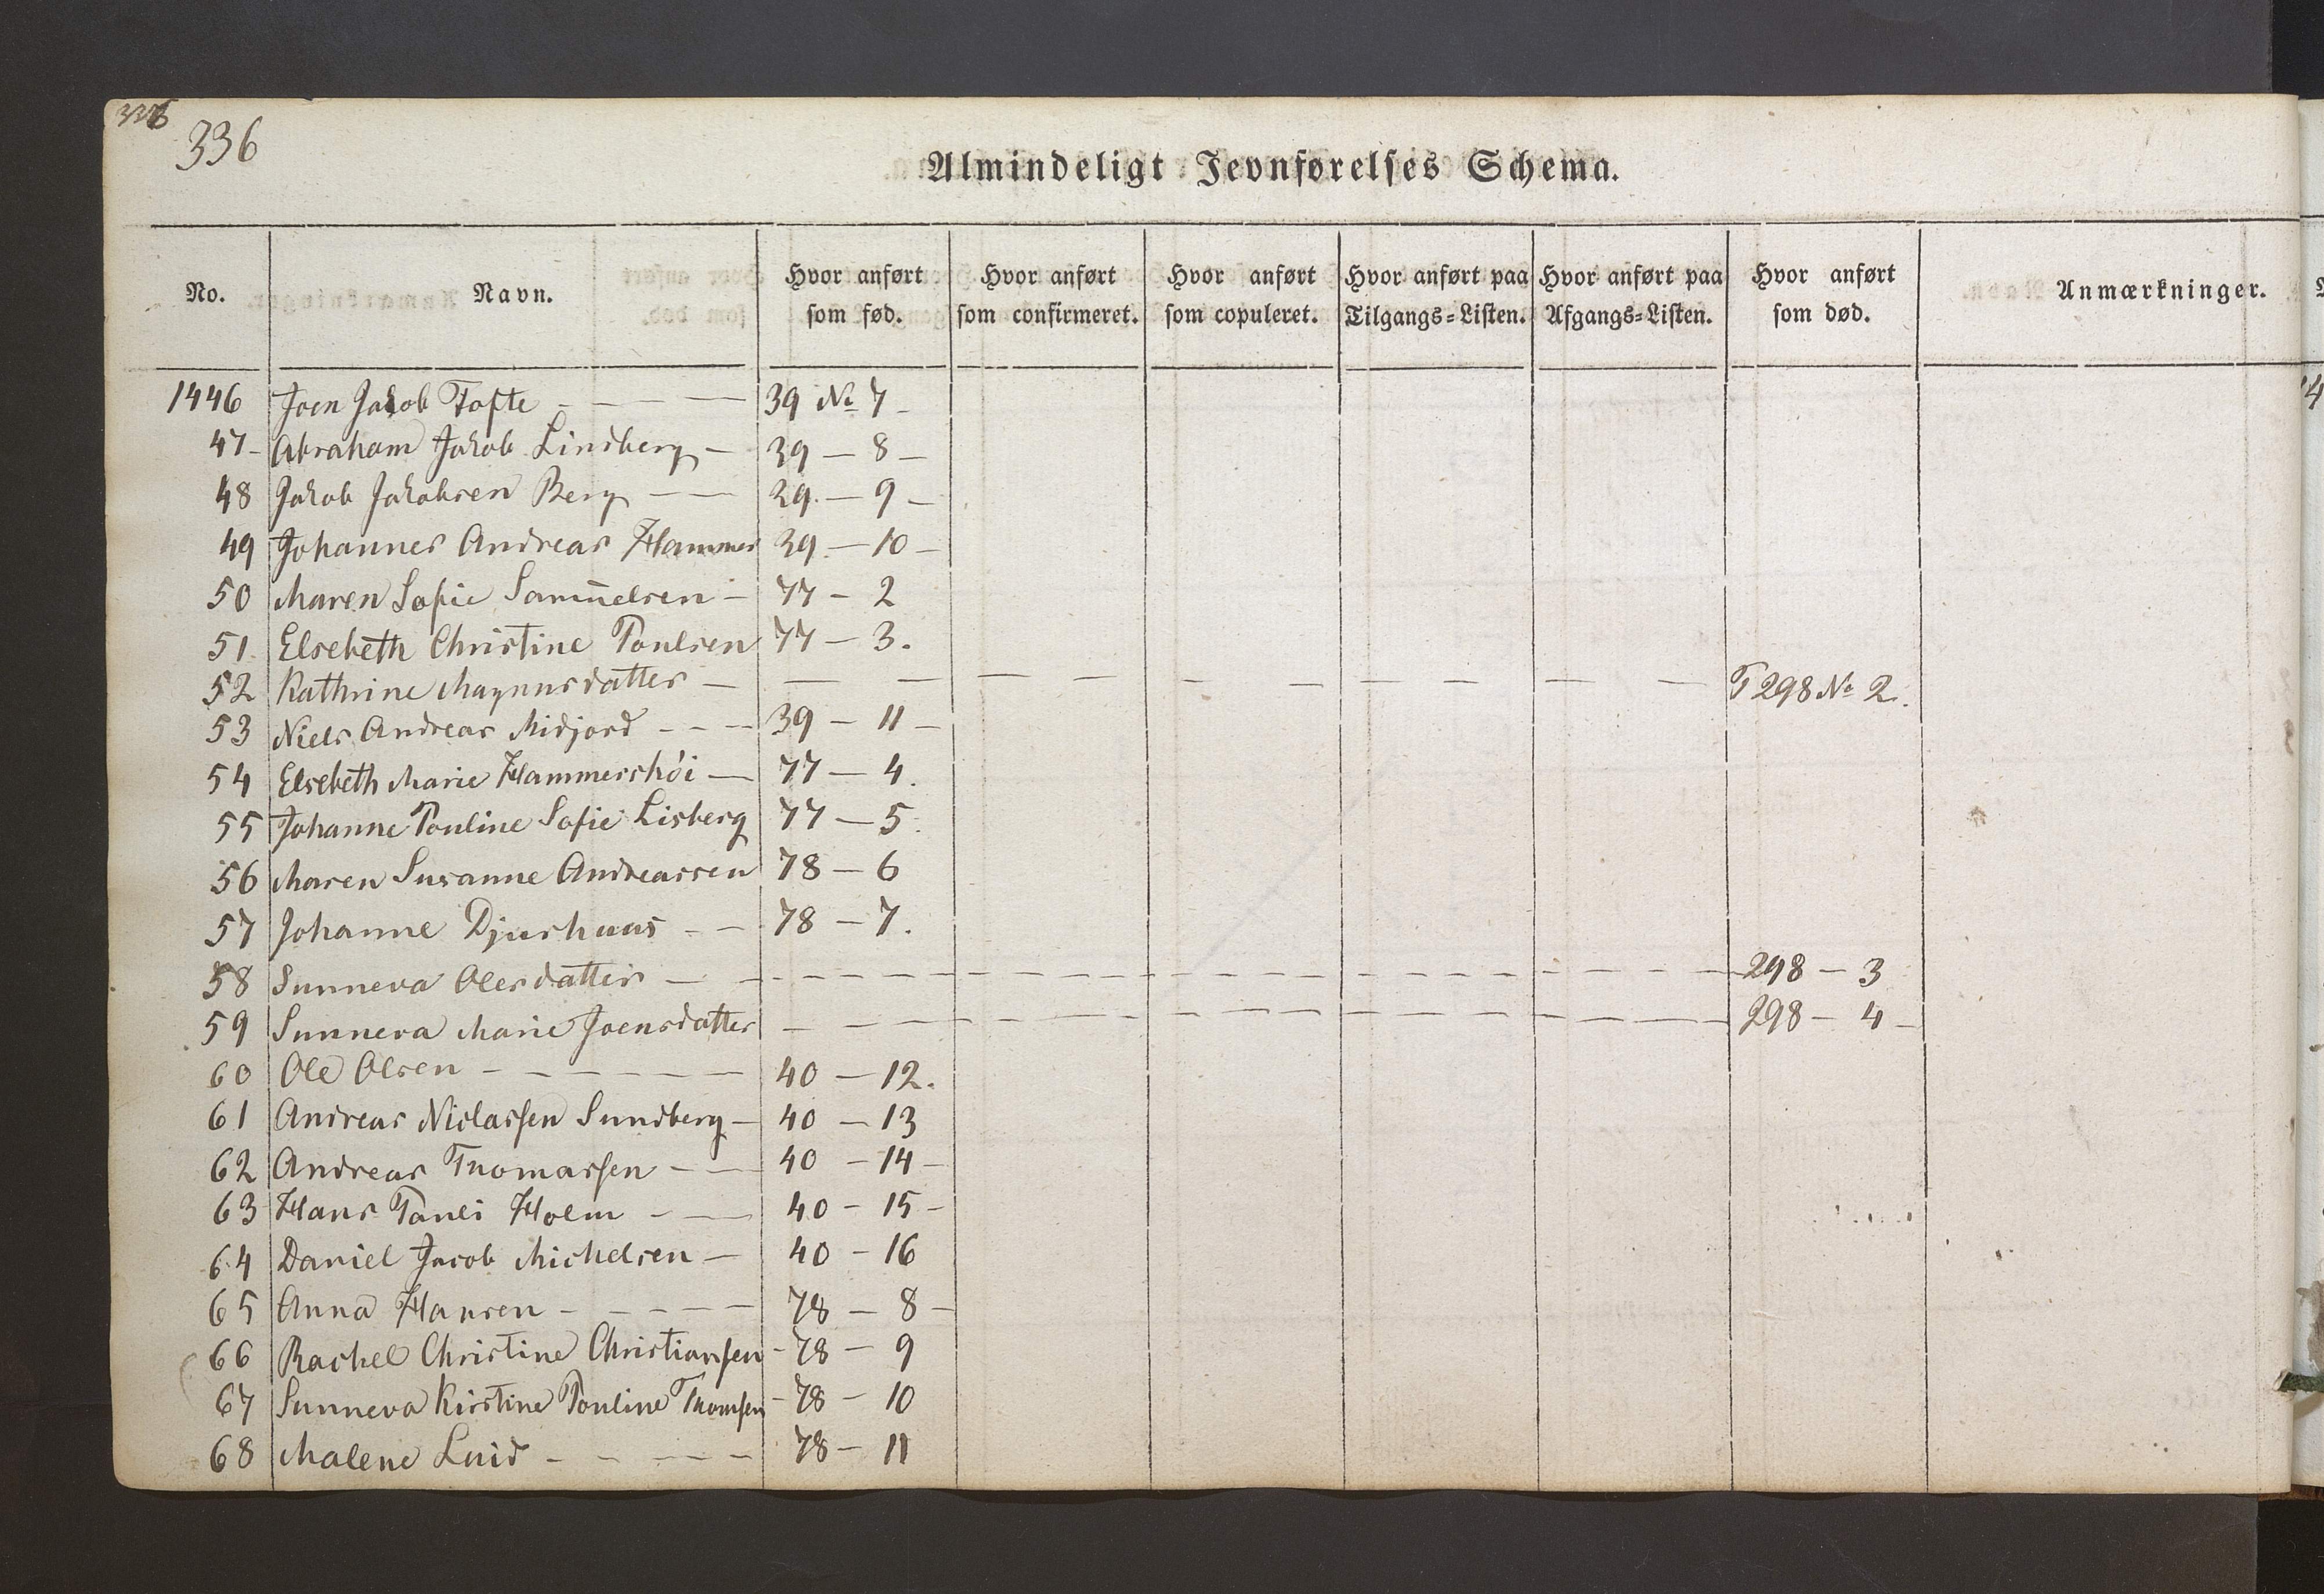 336
Almindeligt Jevnførelses Schema.
No. Navn. Hvor anført som fød. Hvor anført som confirmeret. Hvor anført som copuleret. Hvor anført paa Tilgangs-Listen. Hvor anført paa Afgangs-Listen. Hvor anført som død. Anmærkninger.
1446 Joen Jacob Tofte - — — — 39 No 7 -
47- Abraham Jakob Lindberg — 39 — 8 —
48 Jakob Jakobsen Berg — — 39. — 9 —
49 Johannes Andreas Hammer 39. — 10 —
50 Maren Sofie Samuelsen — 77 — 2
51. Elsebeth Christine Poulsen 77 — 3.
52 Kathrine Magnusdatter — — — — — — — — — — — — T 298 No 2.
53 Niels Andreas Midjord - - — 39 — 11 —
54 Elsebeth Marie Hammershöi — 77 — 4.
55 Johanne Pouline Sofie Lisberg 77 — 5.
56 Maren Susanne Andreassen 78 — 6
57 Johanne Djurhuus - — 78 — 7.
58 Sunneva Olesdatter — — — — — — — — — — — — 298 — 3
59 Sunneva Marie Joensdatter — — — — — — — — — — — — 298 — 4 —
60 Ole Olsen - - — — — — 40 — 12.
61 Andreas Niclassen Sundberg — 40 — 13
62 Andreas Thomassen - — 40 — 14 —
63 Hans Pauli Holm - — 40 — 15 —
64 Daniel Jacob Michelsen — 40 — 16
65 Anna Hansen - - — — — 78 — 8 —
66 Rachel Christine Christiansen - 78 — 9
67 Sunneva Kirstine Pouline Thomsen - 78 — 10
68 Malene Luid - - — — 78 — 11